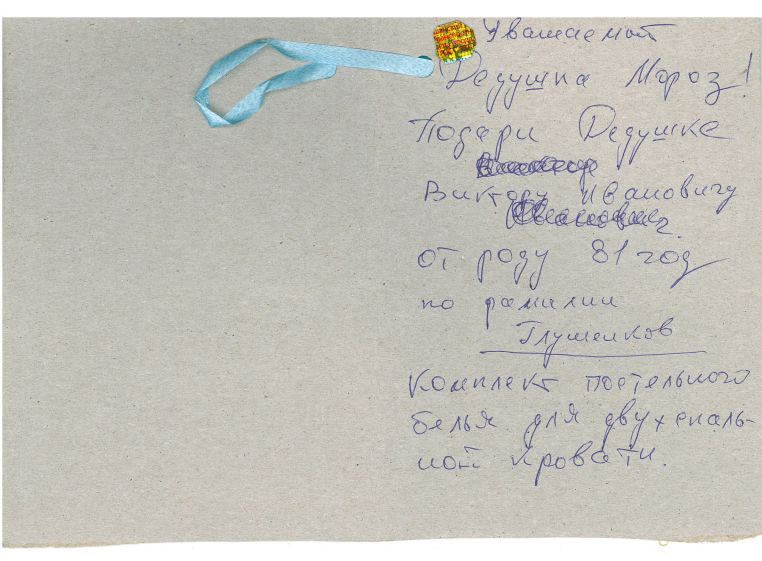 Уважаемый
Дедушка Мороз!
Подари Дедушке
Виктору Ивановичу
от роду 81 год
по фамилии
Глушенков
Комплект постельного
белья для двухспаль-
ной кровати.